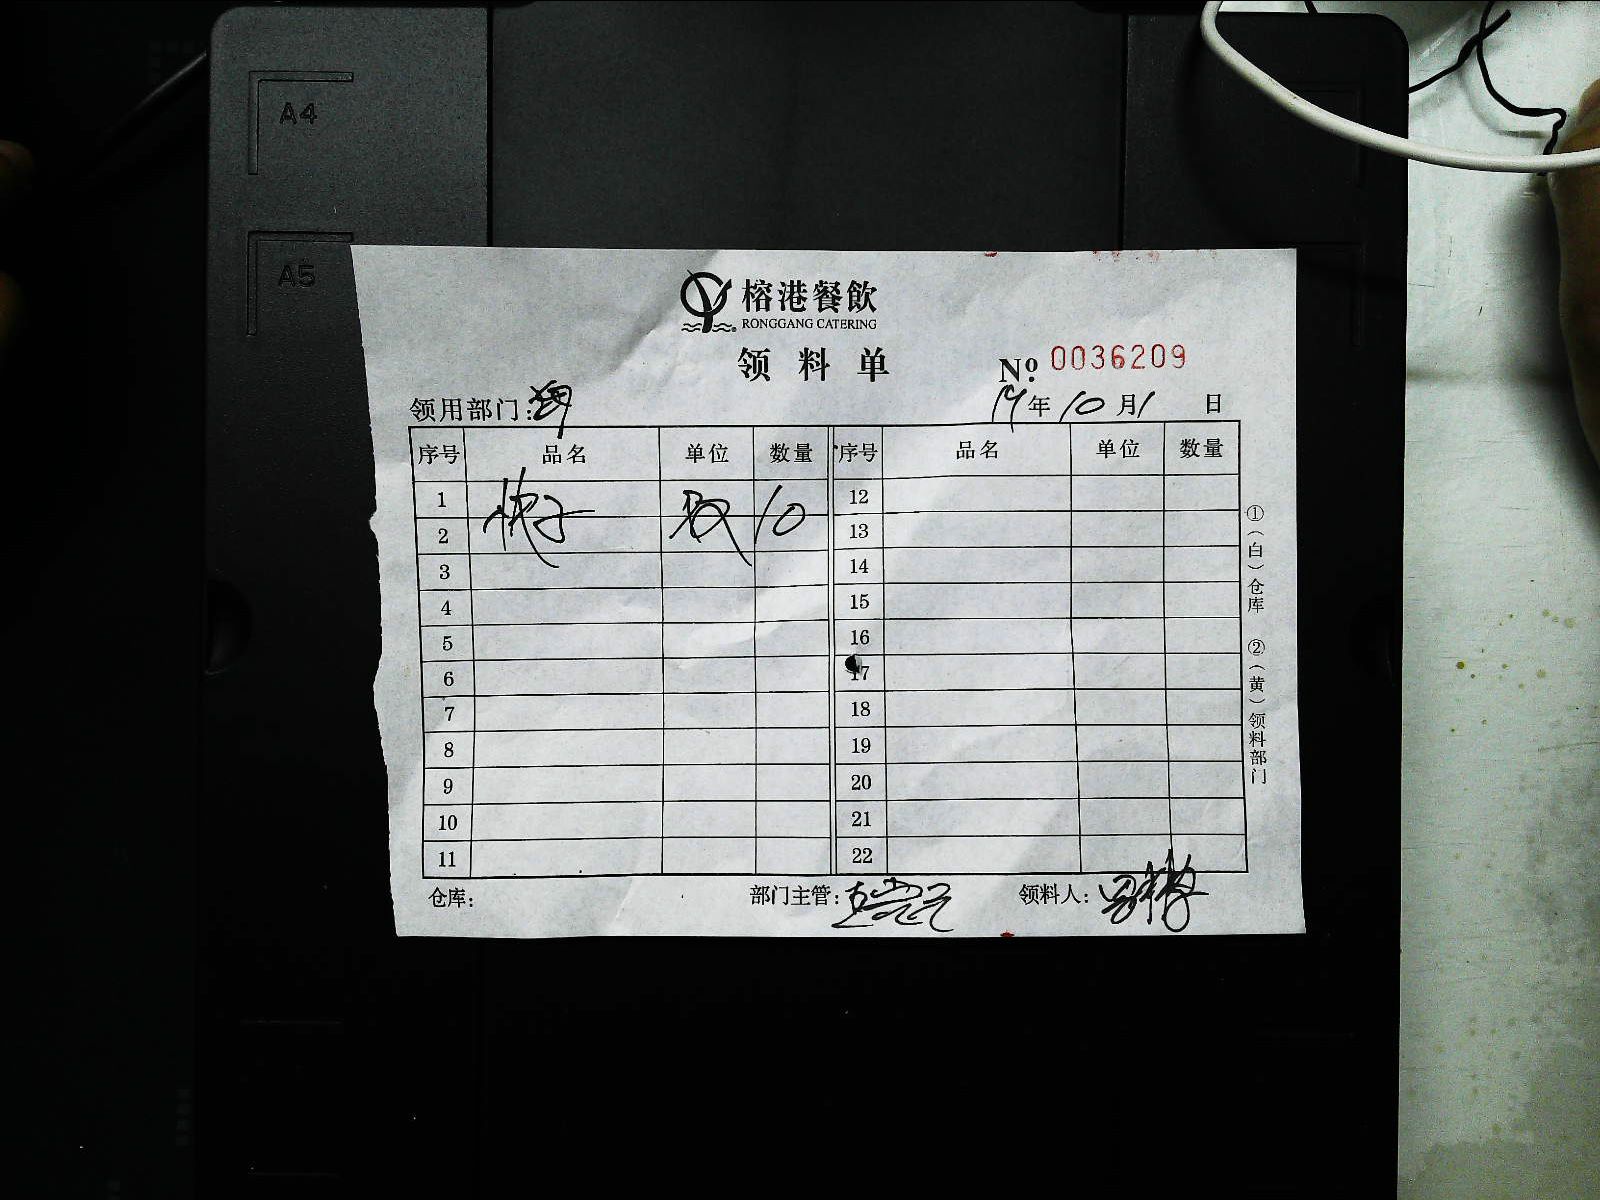 A4
A5
榕港餐飲
RONGGANG CATERING
领料单
Nº 0036209
领用部门:
年 10 月 1 日
序号 品名 单位 数量 序号 品名 单位 数量
1 快子 双 10 12
2 13
3 14
4 15
5 16
6 17
7 18
8 19
9 20
10 21
11 22
仓库: 部门主管: 领料人:
①(白)仓库 ②(黄)领料部门